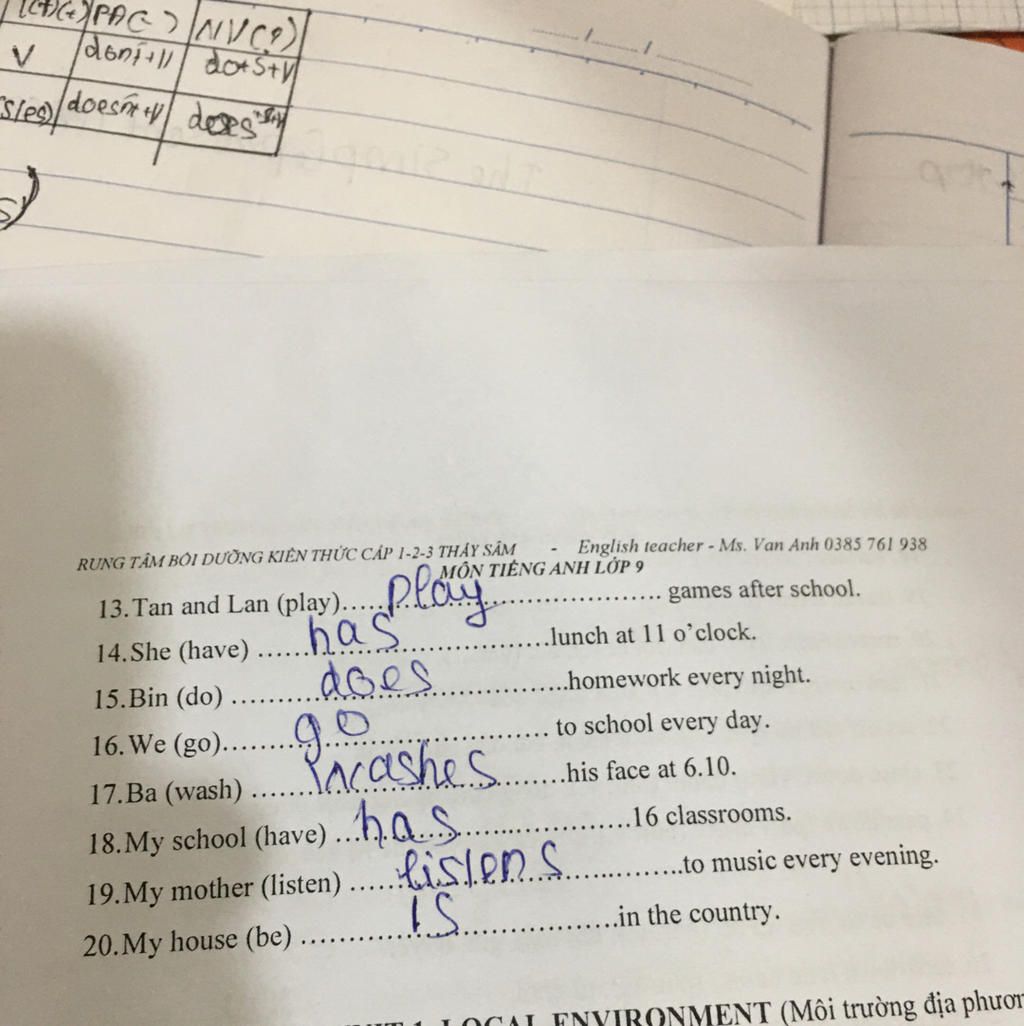 PĐ(-) NV(?)
V don't+V do+S+V
doesn't+V does+S+V
RUNG TÂM BỒI DƯỠNG KIẾN THỨC CẤP 1-2-3 THẦY SÂM - English teacher - Ms. Van Anh 0385 761 938
MÔN TIẾNG ANH LỚP 9
13.Tan and Lan (play)....play.......................... games after school.
14.She (have) ......has..........................lunch at 11 o'clock.
15.Bin (do) ............does....................homework every night.
16.We (go)..........go........................ to school every day.
17.Ba (wash) ........washes.........his face at 6.10.
18.My school (have) ...has........................16 classrooms.
19.My mother (listen) ......listens...............to music every evening.
20.My house (be) ...............is...................in the country.
LOCAL ENVIRONMENT (Môi trường địa